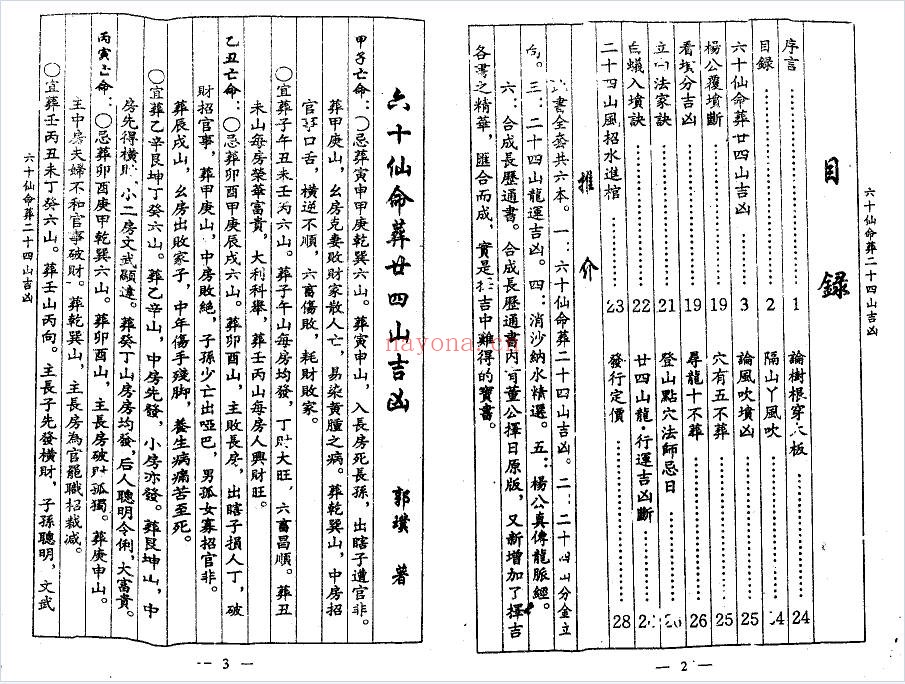 六十仙命葬二十四山吉凶
目 錄
序言 1
目錄 2
六十仙命葬廿四山吉凶 3
楊公覆墳斷 19
看墳分吉凶 19
立向法家訣 21
白蟻入墳訣 22
二十四山風招水進棺 23
論樹根穿 板 24
隔山丫風吹 4
論風吹墳凶 25
穴有五不葬 25
尋龍十不葬 26
登山點穴法師忌日 6
廿四山龍·行運吉凶斷 2
發行定價 28
推 介
書全套共六本。一：六十仙命葬二十四山吉凶。二、二十四山分金立
向。三：二十四山龍運吉凶。四：消沙納水精選。五：楊公真傳龍脈經。
六：合成長歷通書。合成長歷通書內有董公擇日原版，又新增加了擇吉
各書之精華，匯合而成，實是擇吉中難得的寶書。
— 2 —
六十仙命葬廿四山吉凶
郭璞 著
甲子亡命：○忌葬寅申甲庚乾巽六山。葬寅申山，入長房死長孫，出瞎子遭官非。
葬甲庚山，幺房克妻敗財家散人亡，易染黃腫之病。葬乾巽山，中房招
官事口舌，橫逆不順，六畜傷敗，耗財敗家。
○宜葬子午丑未壬丙六山。葬子午山每房均發，丁財大旺，六畜昌順。葬丑
未山每房榮華富貴，大利科舉，葬壬丙山每房人興財旺。
乙丑亡命：○忌葬卯酉甲庚辰戌六山。葬卯酉山，主敗長房，出瞎子損人丁，破
財招官事，葬甲庚山，中房敗絕，子孫少亡出啞巴，男孤女寡招官非。
葬辰戌山，幺房出敗家子，中年傷手殘脚，養生病痛苦至死。
○宜葬乙辛艮坤丁癸六山。葬乙辛山，中房先發，小房亦發。葬艮坤山，中
房先得橫財，小二房文武顯達。葬癸丁山房房均發，后人聰明令俐，大富貴。
丙寅亡命：○忌葬卯酉庚甲乾巽六山。葬卯酉山，主長房破財孤獨。葬庚申山。
主中房夫婦不和官事破財。葬乾巽山，主長房為官罷職招裁減。
○宜葬壬丙丑未丁癸六山。葬壬山丙向。主長子先發橫財，子孫聰明，文武
六十仙命葬二十四山吉凶
— 3 —
nayona.cn